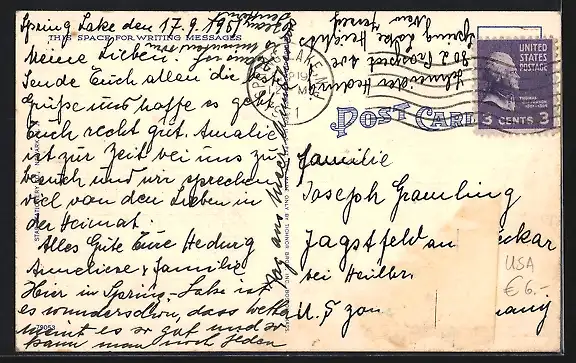 Spring Lake den 17.9.1951
THIS SPACE FOR WRITING MESSAGES
Meine Lieben.
Sende Euch allen die besten
Grüße und hoffe es geht
Euch recht gut. Amalie
ist zur Zeit bei uns zu
besuch und wir sprechen
viel von den Lieben in
der Heimat.
Alles Gute Eure Hedwig
Anneliese & Familie
Hier in Spring-Lake ist
es wunderschön, dass
meint es so gut und so
kann man noch jeden
79053
Schneider Hedwig
302 Prospect Ave
Spring Lake Heights
New Jersey
SPRING LAKE, N.J.
UNITED
STATES
POSTAGE
3 CENTS 3
POST CARD
Familie
Joseph Gramling
Jagstfeld an ckar
bei Heilbr
U.S zon many
USA
€ 6.-